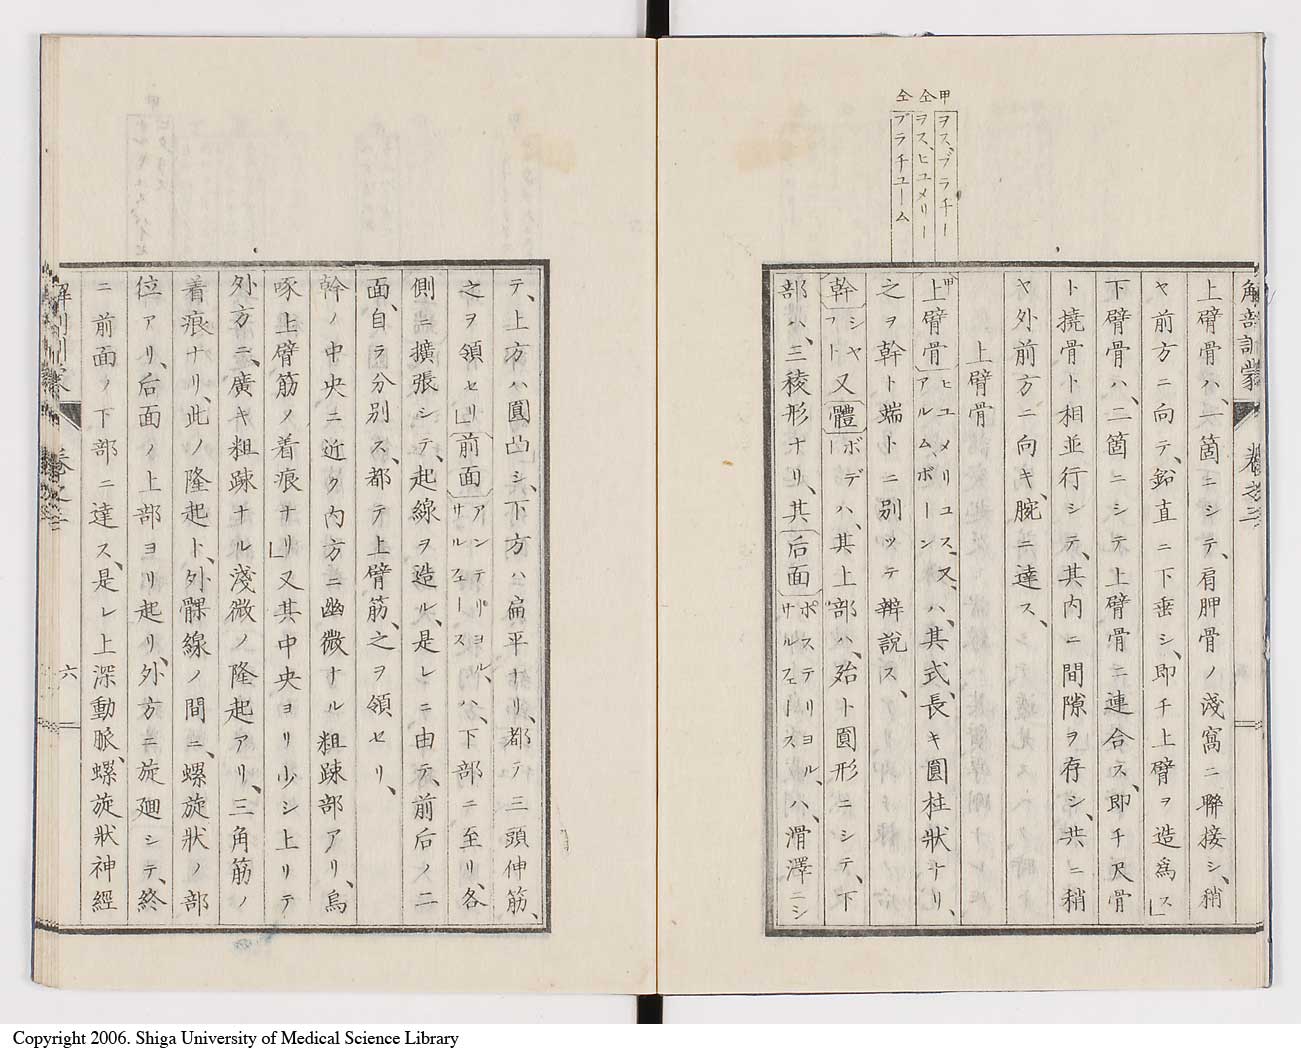 甲 ヲス、ブラチー
仝 ヲス、ヒユメリー
仝 ブラチユーム
上臂骨ハ、一箇ニシテ、肩胛骨ノ淺窩ニ聯接シ、稍
ヤ前方ニ向テ、鉛直ニ下垂シ、即チ上臂ヲ造爲ス」
下臂骨ハ、二箇ニシテ上臂骨ニ連合ス、即チ尺骨
ト撓骨ト相並行シテ、其内ニ間隙ヲ存シ、共ニ稍
ヤ外前方ニ向キ、腕ニ達ス、
上臂骨
甲上臂骨ヒユメリユス、又ハ、アルム、ボーン其式、長キ圓柱狀ナリ、
之ヲ幹ト端トニ別ツテ辨説ス、
幹シヤフト又體ボデーハ、其上部ハ、殆ト圓形ニシテ、下
部ハ、三稜形ナリ、其后面ポステリヨル、サルフェースハ、滑澤ニシ
解剖訓蒙 卷之三
テ、上方ハ圓凸シ、下方ハ扁平ナリ、都テ三頭伸筋、
之ヲ領セリ」前面アンテリヨル、サルフェースハ、下部ニ至リ、各
側ニ擴張シテ、起線ヲ造ル、是レニ由テ、前后ノ二
面、自ラ分別ス、都テ上臂筋、之ヲ領セリ、
幹ノ中央ニ近ク内方ニ幽微ナル粗疎部アリ、烏
啄上臂筋ノ着痕ナリ」又其中央ヨリ少シ上リテ
外方ニ、廣キ粗疎ナル淺微ノ隆起アリ、三角筋ノ
着痕ナリ、此ノ隆起ト、外髁線ノ間ニ、螺旋狀ノ部
位アリ、后面ノ上部ヨリ起リ、外方ニ旋廻シテ、終
ニ前面ノ下部ニ達ス、是レ上深動脈、螺旋狀神經
六
Copyright 2006. Shiga University of Medical Science Library